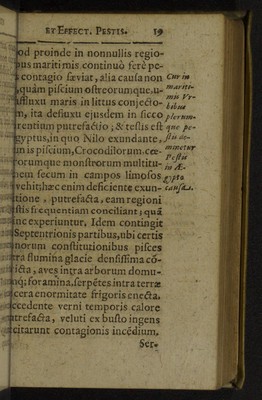 ET EFFECT. PESTIS. 19
od proinde in nonnullis regio-
us maritimis continuò ferè pe-
contagio sæviat, alia causa non
quàm piscium ostreorumque,
fluxu maris in littus conjecto-
m, ita defluxu ejusdem in sicco
rentium putrefactio; & testis est
gyptus, in quo Nilo exundante,
in is piscium, Crocodilorum cæ-
rorumque monstrorum multitu-
nem secum in campos limosos
vehit; hæc enim deficiente exun-
tione, putrefacta, eam regioni
stis frequentiam conciliant; quâ
nc experiuntur. Idem contingit
Septentrionis partibus, ubi certis
norum constitutionibus pisces
ra flumina glacie densissima cō-
icta, aves intra arborum domu-
nq; foramina, serpētes intra terræ
cera enormitate frigoris enecta.
ccedente verni temporis calore
atrefacta, veluti ex busto ingens
citarunt contagionis incēdium.
Set-
Cur in
mariti-
mis Vr-
bibus
plerum-
que pe-
stis do-
minetur
Pestis
in Æ-
gypto
causa.